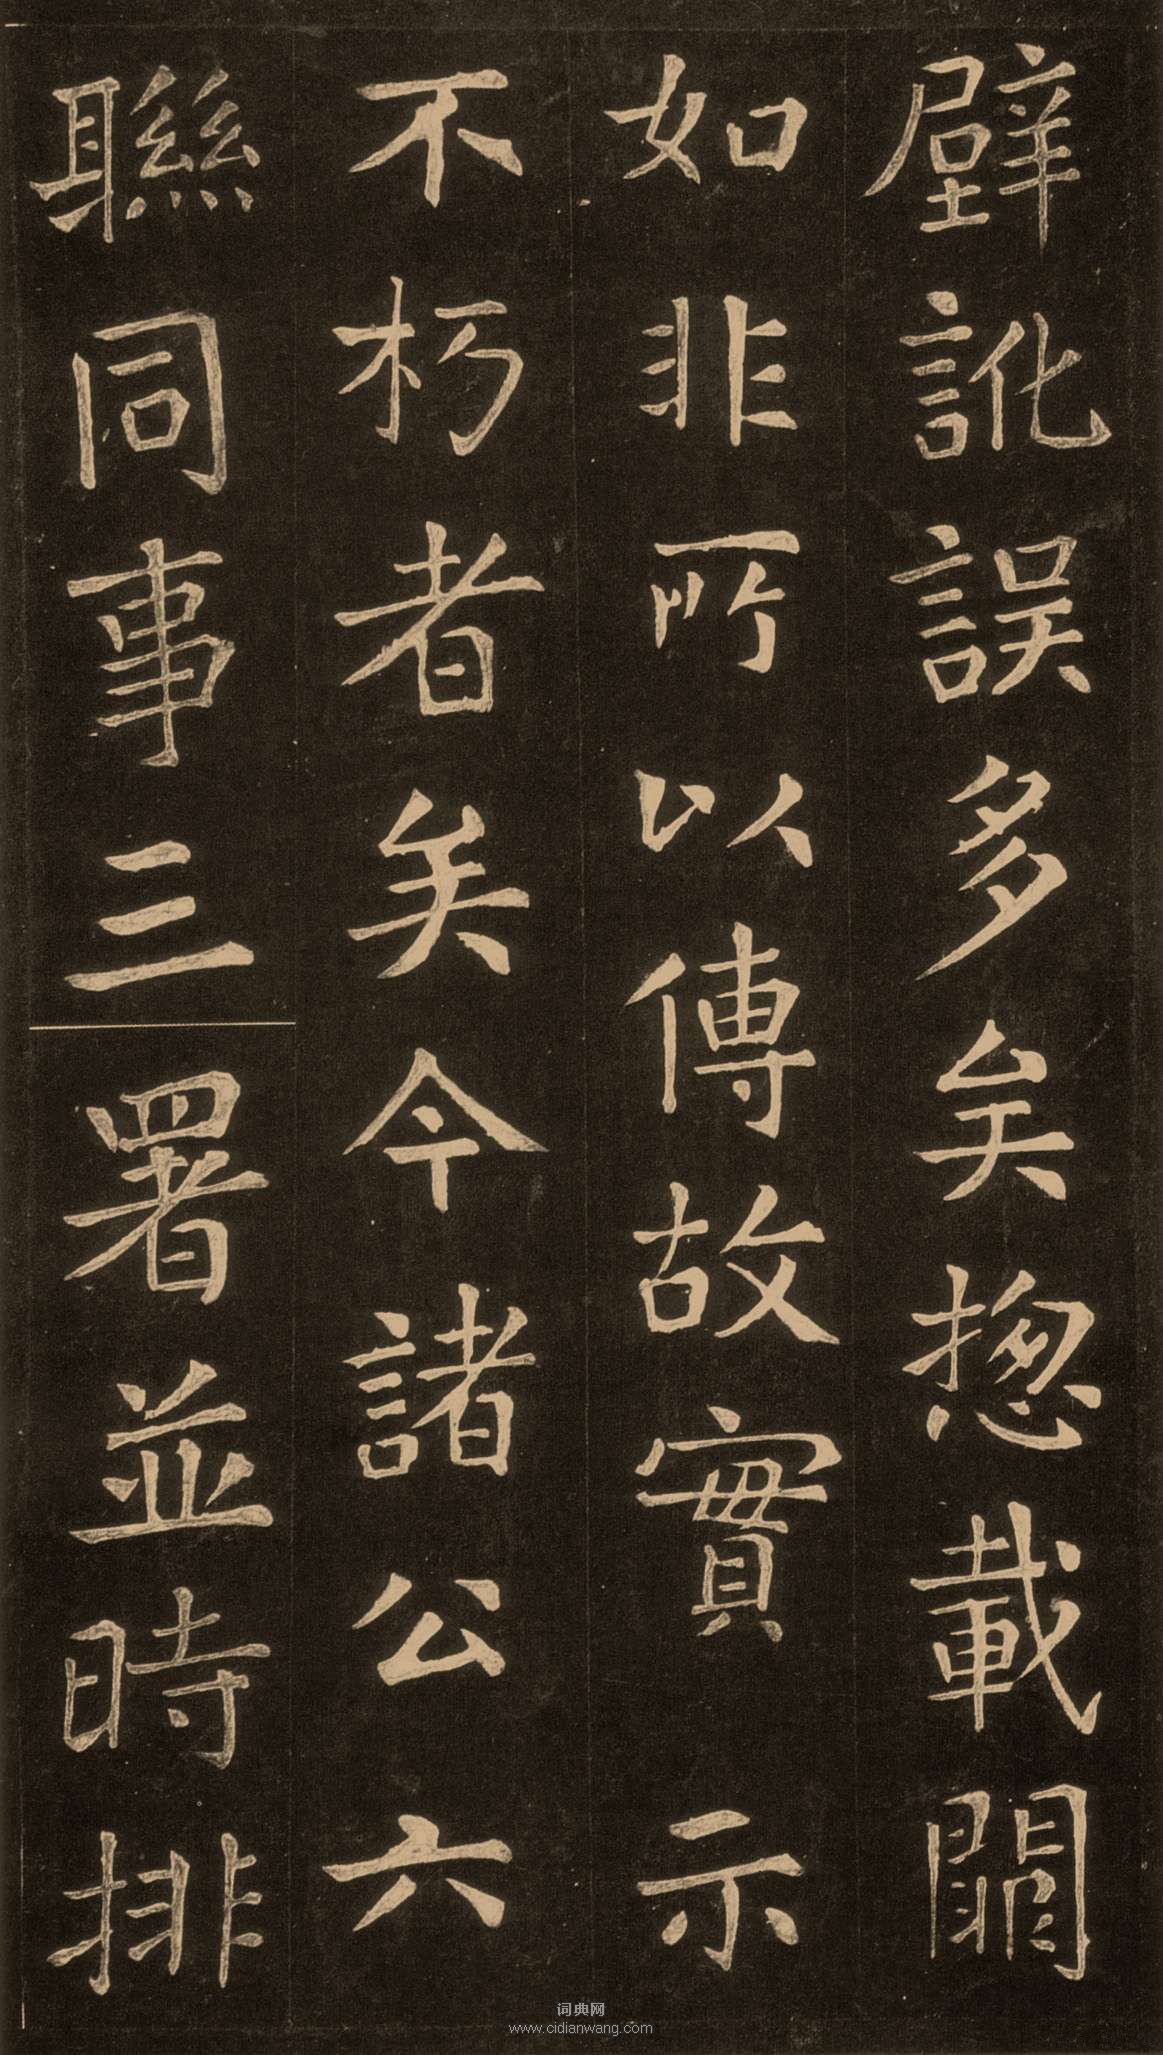 壁訛誤多矣揔載闕
如非所以傳故實示
不朽者矣今諸公六
聯同事三署並時排
词典网
www.cidianwang.com